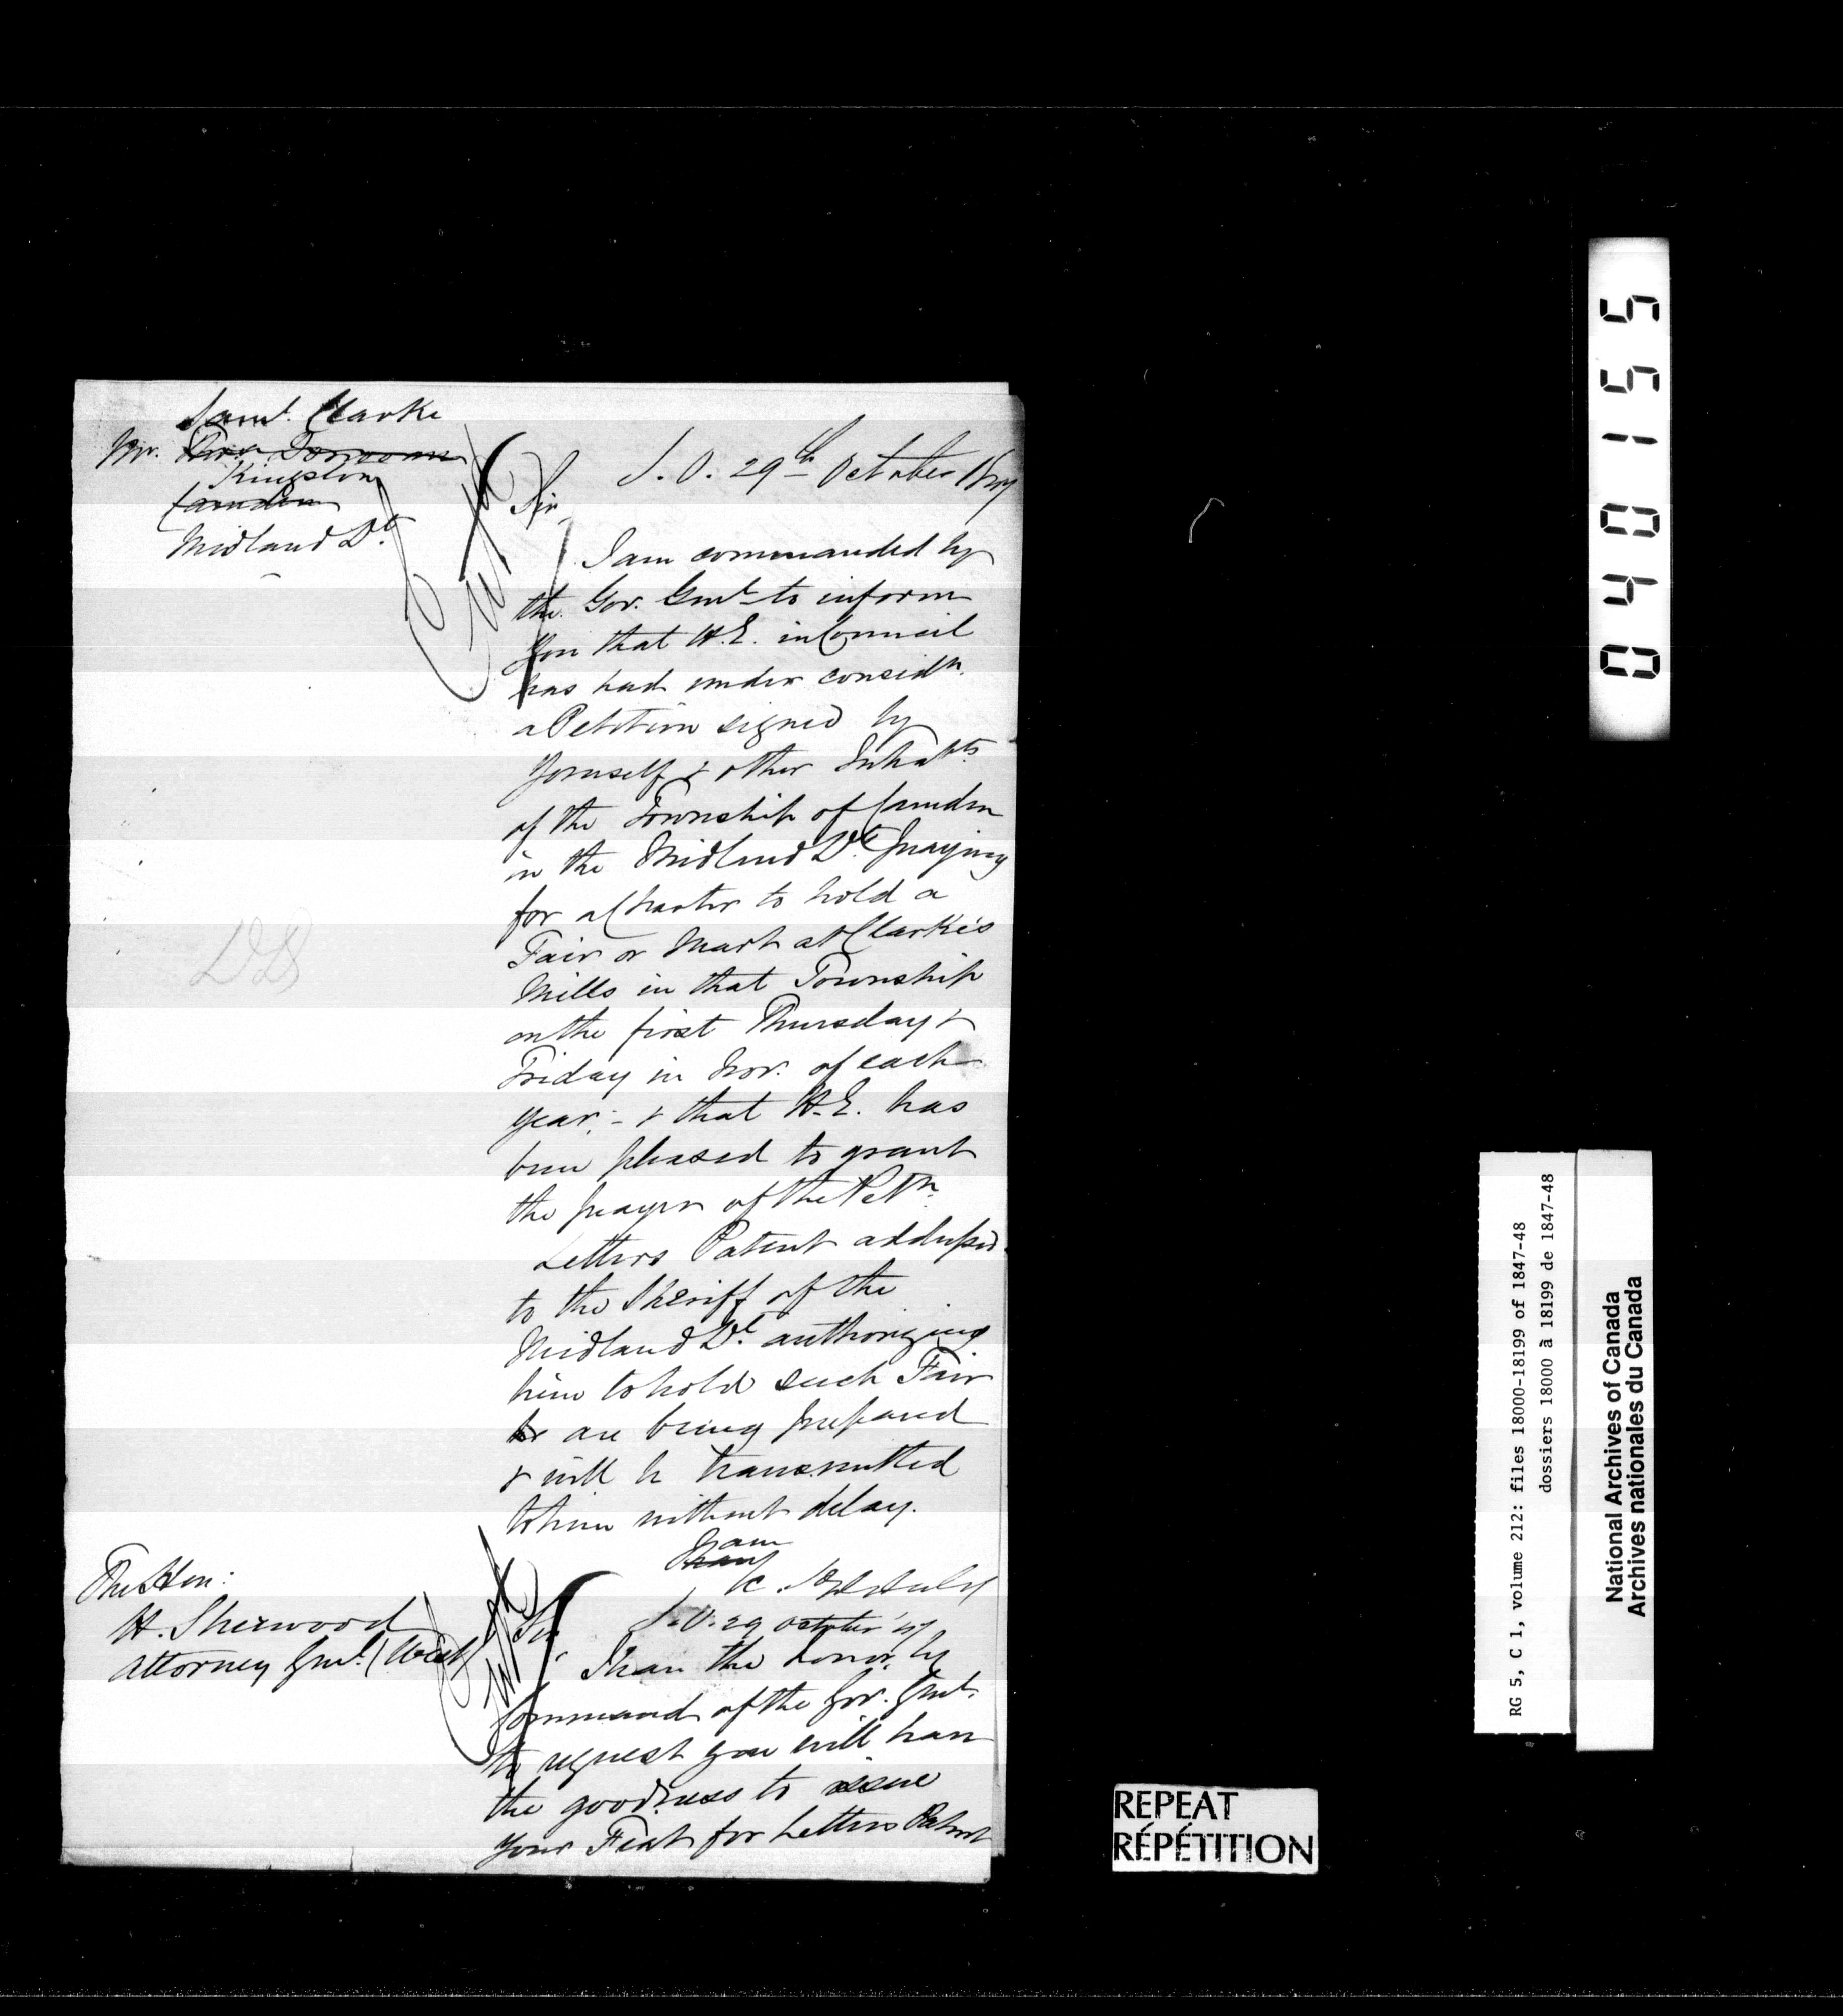 Saml. Clarke
Mr. Thos. Donovan
Kingston
Camden
Midland Dt.
S.O. 29th October 1847
Sir,
I am commanded by
the Gov. Genl. to inform
you that H.E. in Council
has had under considn.
a Petition signed by
yourself & other Inhabts.
of the Township of Camden
in the Midland Dt. praying
for a Charter to hold a
Fair or Mart at Clarke's
Mills in that Township
on the first Thursday &
Friday in Nov. of each
year; - & that H.E. has
been pleased to grant
the prayer of the Petn.
Letters Patent addressed
to the Sheriff of the
Midland Dt. authorizing
him to hold such Fair
are being prepared
& will be transmitted
to him without delay.
I am
The Hon:
H. Sherwood
Attorney Genl. (West)
S.O. 29 October '47
Sir,
I have the honor, by
Command of the Gov. Genl.
to request you will have
the goodness to issue
your Fiat for Letters Patent
DD
040155
RG 5, C 1, volume 212: files 18000-18199 of 1847-48
dossiers 18000 à 18199 de 1847-48
National Archives of Canada
Archives nationales du Canada
REPEAT
RÉPÉTITION